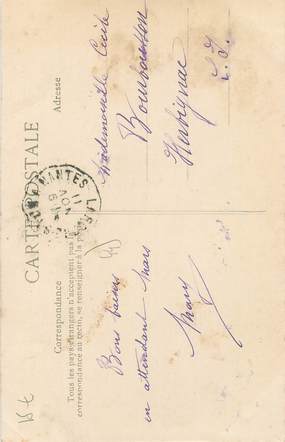 CARTE POSTALE
Correspondance
Adresse
Tous les pays étrangers n'acceptent pas la
correspondance au recto, se renseigner à la poste
Bons baisers
en attendant Mars
Mary
Mademoiselle Cécile
Herbignac
L. I.
NANTES